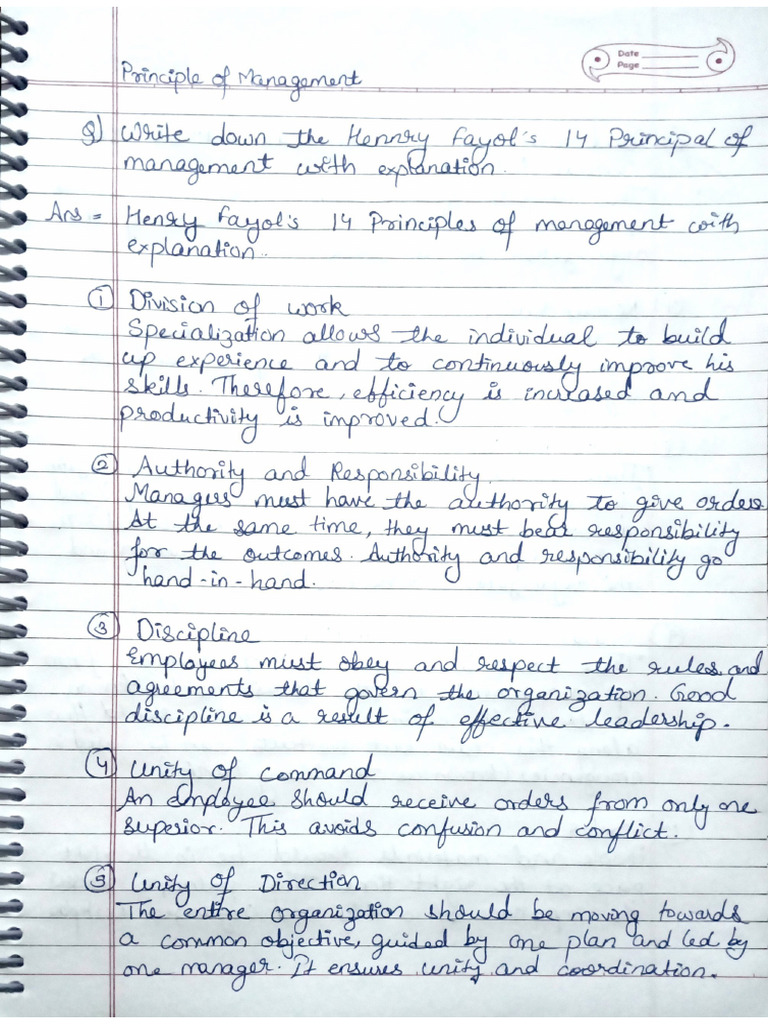 Date
Page
Principle of Management
Q) Write down the Hennry Fayol's 14 Principal of
management with explanation.
Ans = Henry Fayol's 14 Principles of management with
explanation.
① Division of work
Specialization allows the individual to build
up experience and to continuously improve his
skills. Therefore, efficiency is increased and
productivity is improved.
② Authority and Responsibility.
Managers must have the authority to give orders.
At the same time, they must bear responsibility
for the outcomes. Authority and responsibility go
hand-in-hand.
③ Discipline
Employees must obey and respect the rules and
agreements that govern the organization. Good
discipline is a result of effective leadership.
④ Unity of Command
An employee should receive orders from only one
superior. This avoids confusion and conflict.
⑤ Unity of Direction
The entire organization should be moving towards
a common objective, guided by one plan and led by
one manager. It ensures unity and coordination.